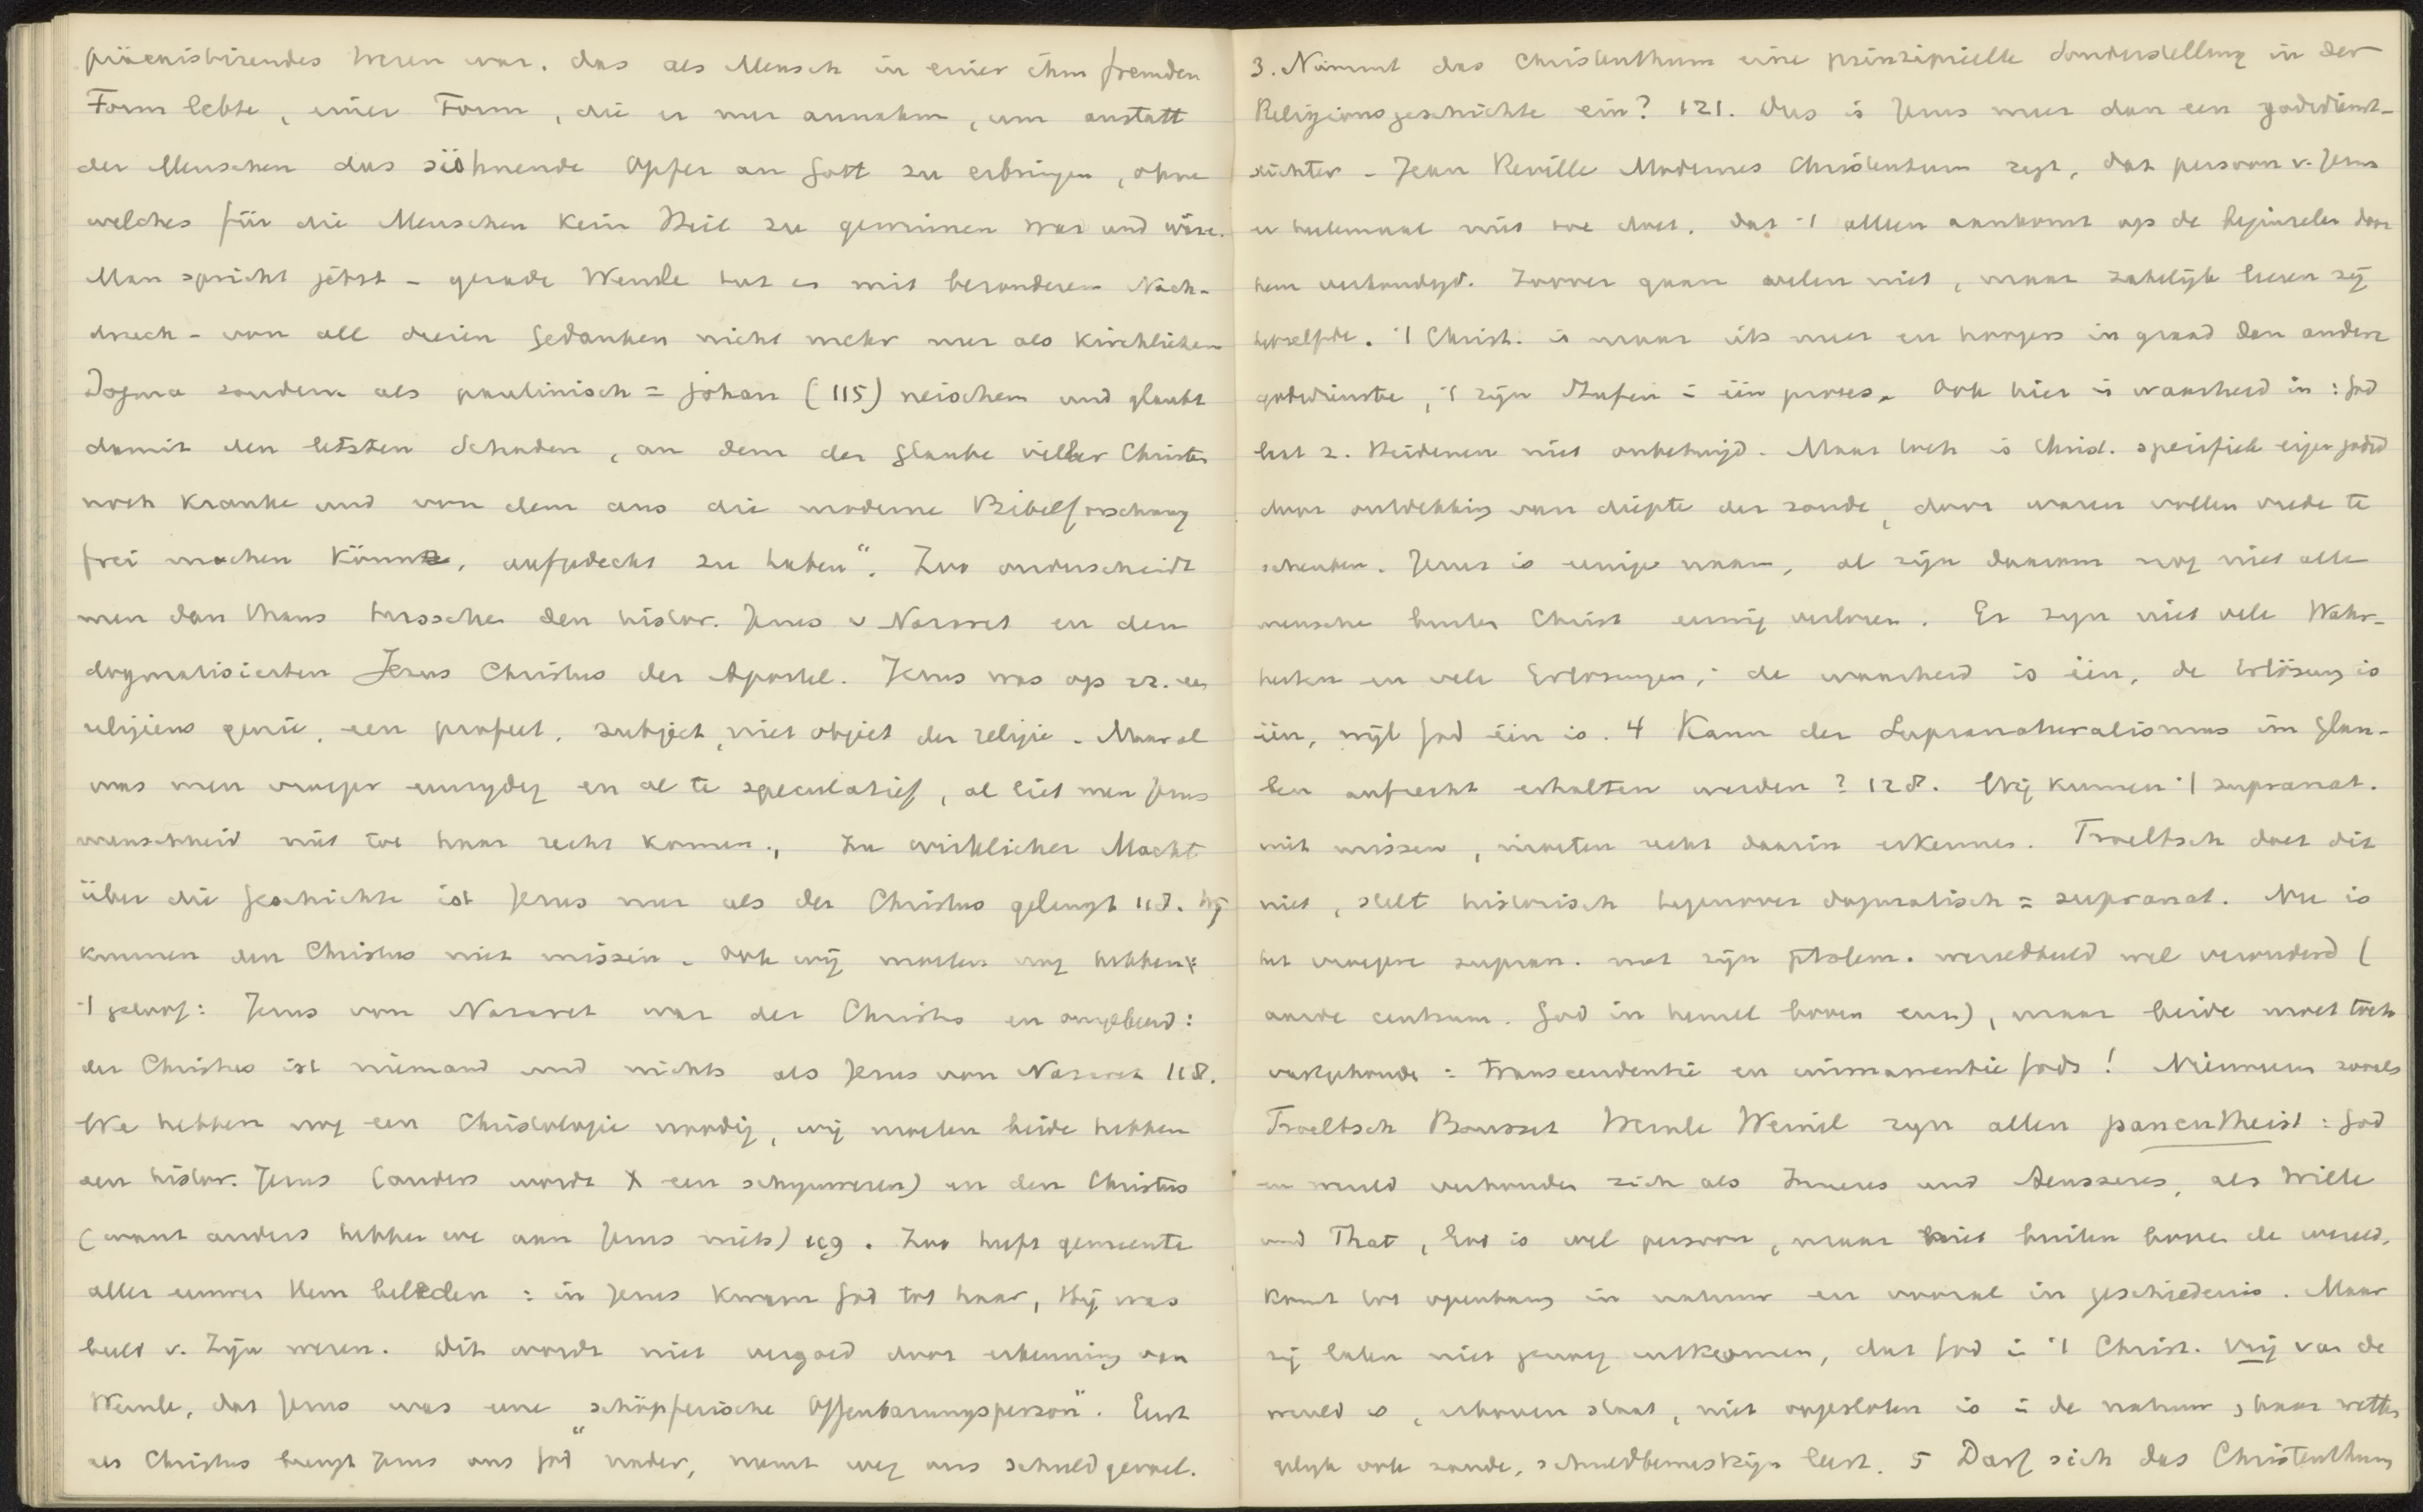 präexistirendes Wesen war, das als Mensch in einer ihm fremden
Form lebte, einer Form, die er nur annahm, um anstatt
der Menschen das sühnende Opfer an Gott zu erbringen, ohne
welches für die Menschen kein Heil zu gewinnen war und wäre.
Man spricht jetzt - gerade Wernle tut es mit besonderem Nach-
druck - von all diesen Gedanken nicht mehr nur als kirchlichem
Dogma sondern als paulinisch = johan (115) neischem und glaubt
damit den letzten Schaden, an dem der Glaube vieler Christen
noch kranke und von dem aus die moderne Bibelforschung
frei machen könnte, aufgedeckt zu haben". Zoo onderscheidt
men dan thans tussche den histor. Jezus v Nazaret en den
dogmatisierten Jezus Christus der Apostel. Jezus was op zz. een
religieus genie, een profeet, subject, niet object der religie. Maar al
was men vroeger eenzydig en al te speculatief, al liet men Jezus
menschheid niet toe haar recht komen., Zu wirklicher Macht
über die Geschichte ist Jesus nur als der Christus gelangt 118. Wij
kunnen den Christus niet missen. Ook wij moeten nog hebben
't geloof: Jesus von Nazaret war der Christus en omgekeerd:
der Christus ist niemand und nichts als Jesus von Nazaret 118.
We hebben nog een Christologie noodig, wij moeten beide hebben
den histor. Jezus (anders wordt X een schynwezen) en den Christus
(want anders hebben we aan Jezus niets) 119. Zoo heeft gemeente
aller eeuwen Hem beleden: in Jezus kwam God tot haar, Hij was
beeld v. Zijn wezen. Dit wordt niet vergoed door erkenning van
Wernle, dat Jezus was eine „schöpferische Offenbarungsperson". Eerst
als Christus brengt Jezus ons God nader, neemt weg ons schuldgevoel.
3. Nimmt das Christenthum eine prinzipielle Sonderstellung in der
Religionsgeschichte ein? 121. Dus is Jezus meer dan een godsdienst-
stichter - Jean Reville Modernes Christentum zegt, dat persoon v. Jezus
er heelemaal niet toe doet, dat 't alleen aankomt op de beginselen door
hem verkondigd. Zoover gaan velen niet, maar zakelijk leeren zij
hetzelfde. 't Christ. is maar iets meer en hoogers in graad dan andere
godsdienste, 't zijn Stufen in één proces. Ook hier is waarheid in: God
laat z. Heidenen niet onbetuigd. Maar toch is Christ. specifiek eigen godsd
door ontdekking van diepte der zonde, door waren vollen vrede te
schenken. Jezus is eenige naam, al zijn daarom nog niet alle
mensche buiten Christ eeuwig verloren. Er zyn niet vele Wahr-
heiten en vele Erlösungen; de waarheid is één, de Erlösung is
één, wijl God één is. 4 Kann der Supranaturalismus im Glau-
ben aufrecht erhalten werden? 128. Wij kunnen 't supranat.
niet missen, moeten recht daarin erkennen. Troeltsch doet dit
niet, stelt historisch tegenover dogmatisch = supranat. Nu is
het vroegere supran. met zijn ptolem. wereldbeeld wel veranderd (
aarde centrum. God in hemel boven enz), maar beide moet toch
vastgehoude: transcendentie en immanentie Gods! Mannen zooals
Troeltsch Bousset Wernle Weinel zyn allen panentheist: God
en wereld verhouden zich als Inneres und Aeusseres, als Wille
und That, God is wel persoon, maar niet buiten boven de wereld,
komt tot openbaring in natuur en vooral in geschiedenis. Maar
zij laten niet genoeg uitkomen, dat God in 't Christ. vrij van de
wereld is, erboven staat, niet opgesloten is in de natuur, haar wetten
gelijk ook zonde, schuldbewustzijn leert. 5 Darf sich das Christenthum